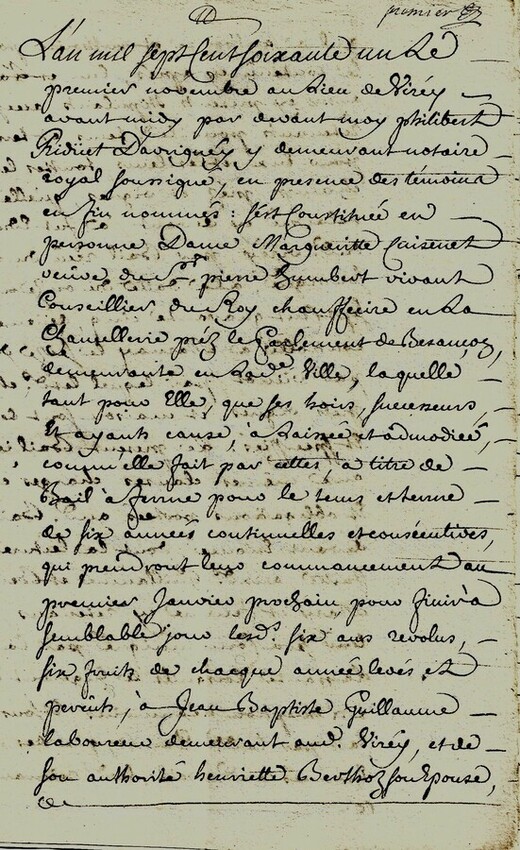 premier
L'an mil sept Cent soixante un Le
premier novembre au Lieu de Virey
avant midy par devant moy philibert
Davrigney y demeurant notaire
royal soussigné, en presence des témoins
en fin nommés : s'est Constituée en
personne Dame Margueritte Caisenet
veuve du Sr. pierre humbert vivant
Conseillier du Roy chauffecire en La
Chancellerie préz le Parlement de Besançon,
demeurante en Lade. Ville, laquelle
tant pour Elle, que ses hoirs, successeurs,
Et ayants cause, à Laissé et admodiée,
comm'elle fait par cettes, à titre de
Bail à ferme pour le tems et terme
de six années continuelles et consécutives,
qui prendront leur commancement au
premier Janvier prochain pour finir à
semblable jour lesds. six ans revolus,
six fruits de chacque année levés et
perçûs, à Jean Baptiste Guillaume
laboureur demeurant aud. Virey, et de
son authorité henriette Berthoz son Epouse,